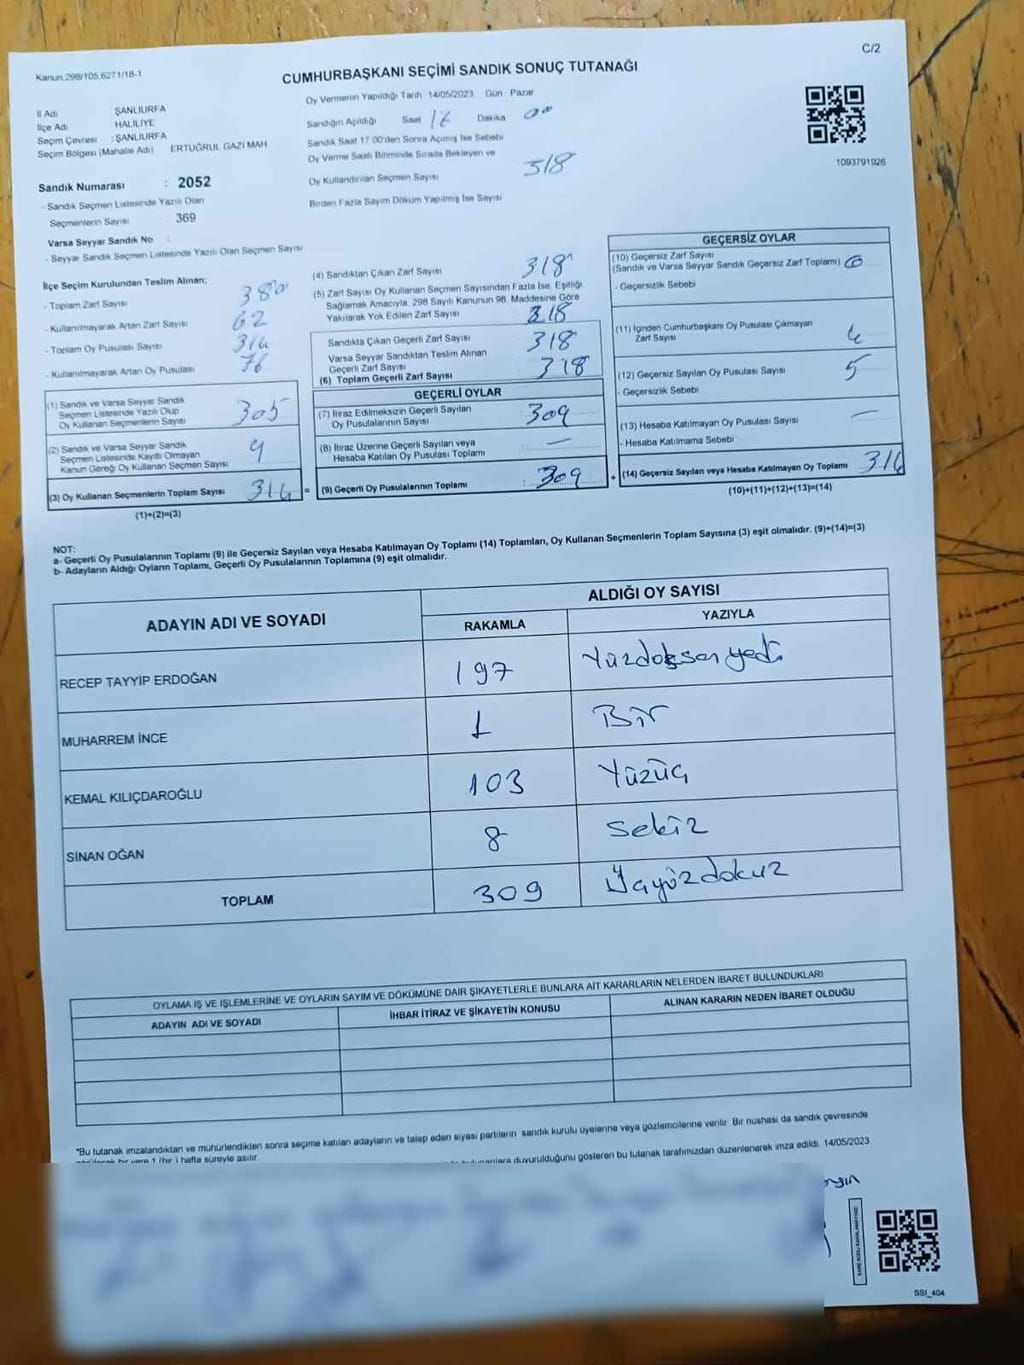 C/2
Kanun:298/105,6271/18-1
CUMHURBAŞKANI SEÇİMİ SANDIK SONUÇ TUTANAĞI
İl Adı ŞANLIURFA
İlçe Adı HALİLİYE
Seçim Çevresi : ŞANLIURFA
Seçim Bölgesi (Mahalle Adı) ERTUĞRUL GAZİ MAH
Oy Vermenin Yapıldığı Tarih 14/05/2023 Gün : Pazar
Sandığın Açıldığı Saat Dakika 00
Sandık Saat 17.00'den Sonra Açımış İse Sebebi
Oy Verme Saati Bitiminde Sırada Bekleyen ve
Oy Kullandırılan Seçmen Sayısı 318
Birden Fazla Sayım Döküm Yapılmış İse Sayısı
1093791926
Sandık Numarası : 2052
- Sandık Seçmen Listesinde Yazılı Olan
Seçmenlerin Sayısı 369
Varsa Seyyar Sandık No :
- Seyyar Sandık Seçmen Listesinde Yazılı Olan Seçmen Sayısı
İlçe Seçim Kurulundan Teslim Alınan;
- Toplam Zarf Sayısı 380
- Kullanılmayarak Artan Zarf Sayısı 62
- Toplam Oy Pusulası Sayısı
- Kullanılmayarak Artan Oy Pusulası 76
(1) Sandık ve Varsa Seyyar Sandık
Seçmen Listesinde Yazılı Olup
Oy Kullanan Seçmenlerin Sayısı 305
(2) Sandık ve Varsa Seyyar Sandık
Seçmen Listesinde Kayıtlı Olmayan
Kanun Gereği Oy Kullanan Seçmen Sayısı 9
(3) Oy Kullanan Seçmenlerin Toplam Sayısı 314 =
(1)+(2)=(3)
(4) Sandıktan Çıkan Zarf Sayısı 318
(5) Zarf Sayısı Oy Kullanan Seçmen Sayısından Fazla İse, Eşitliği
Sağlamak Amacıyla, 298 Sayılı Kanunun 98. Maddesine Göre
Yakılarak Yok Edilen Zarf Sayısı 318
Sandıkta Çıkan Geçerli Zarf Sayısı 318
Varsa Seyyar Sandıktan Teslim Alınan
Geçerli Zarf Sayısı
(6) Toplam Geçerli Zarf Sayısı 318
GEÇERLİ OYLAR
(7) İtiraz Edilmeksizin Geçerli Sayılan
Oy Pusulalarının Sayısı 309
(8) İtiraz Üzerine Geçerli Sayılan veya
Hesaba Katılan Oy Pusulası Toplamı —
(9) Geçerli Oy Pusulalarının Toplamı : 309 +
GEÇERSİZ OYLAR
(10) Geçersiz Zarf Sayısı
(Sandık ve Varsa Seyyar Sandık Geçersiz Zarf Toplamı)
- Geçersizlik Sebebi
(11) İçinden Cumhurbaşkanı Oy Pusulası Çıkmayan
Zarf Sayısı 4
(12) Geçersiz Sayılan Oy Pusulası Sayısı 5
- Geçersizlik Sebebi :
(13) Hesaba Katılmayan Oy Pusulası Sayısı —
- Hesaba Katılmama Sebebi :
(14) Geçersiz Sayılan veya Hesaba Katılmayan Oy Toplamı 314
(10)+(11)+(12)+(13)=(14)
NOT:
a- Geçerli Oy Pusulalarının Toplamı (9) ile Geçersiz Sayılan veya Hesaba Katılmayan Oy Toplamı (14) Toplamları, Oy Kullanan Seçmenlerin Toplam Sayısına (3) eşit olmalıdır. (9)+(14)=(3)
b- Adayların Aldığı Oyların Toplamı, Geçerli Oy Pusulalarının Toplamına (9) eşit olmalıdır.
ADAYIN ADI VE SOYADI ALDIĞI OY SAYISI
RAKAMLA YAZIYLA
RECEP TAYYİP ERDOĞAN 197 Yüzdoksanyedi
MUHARREM İNCE 1 Bir
KEMAL KILIÇDAROĞLU 103 Yüzüç
SİNAN OĞAN 8 sekiz
TOPLAM 309
OYLAMA İŞ VE İŞLEMLERİNE VE OYLARIN SAYIM VE DÖKÜMÜNE DAİR ŞİKAYETLERLE BUNLARA AİT KARARLARIN NELERDEN İBARET BULUNDUKLARI
ADAYIN ADI VE SOYADI İHBAR İTİRAZ VE ŞİKAYETİN KONUSU ALINAN KARARIN NEDEN İBARET OLDUĞU
*Bu tutanak imzalandıktan ve mühürlendikten sonra seçime katılan adayların ve talep eden siyasi partilerin sandık kurulu üyelerine veya gözlemcilerine verilir. Bir nüshası da sandık çevresinde
bir yere 1 (bir ) hafta süreyle asılır.
duyurulduğunu gösteren bu tutanak tarafımızdan düzenlenerek imza edildi. 14/05/2023
SSI_404